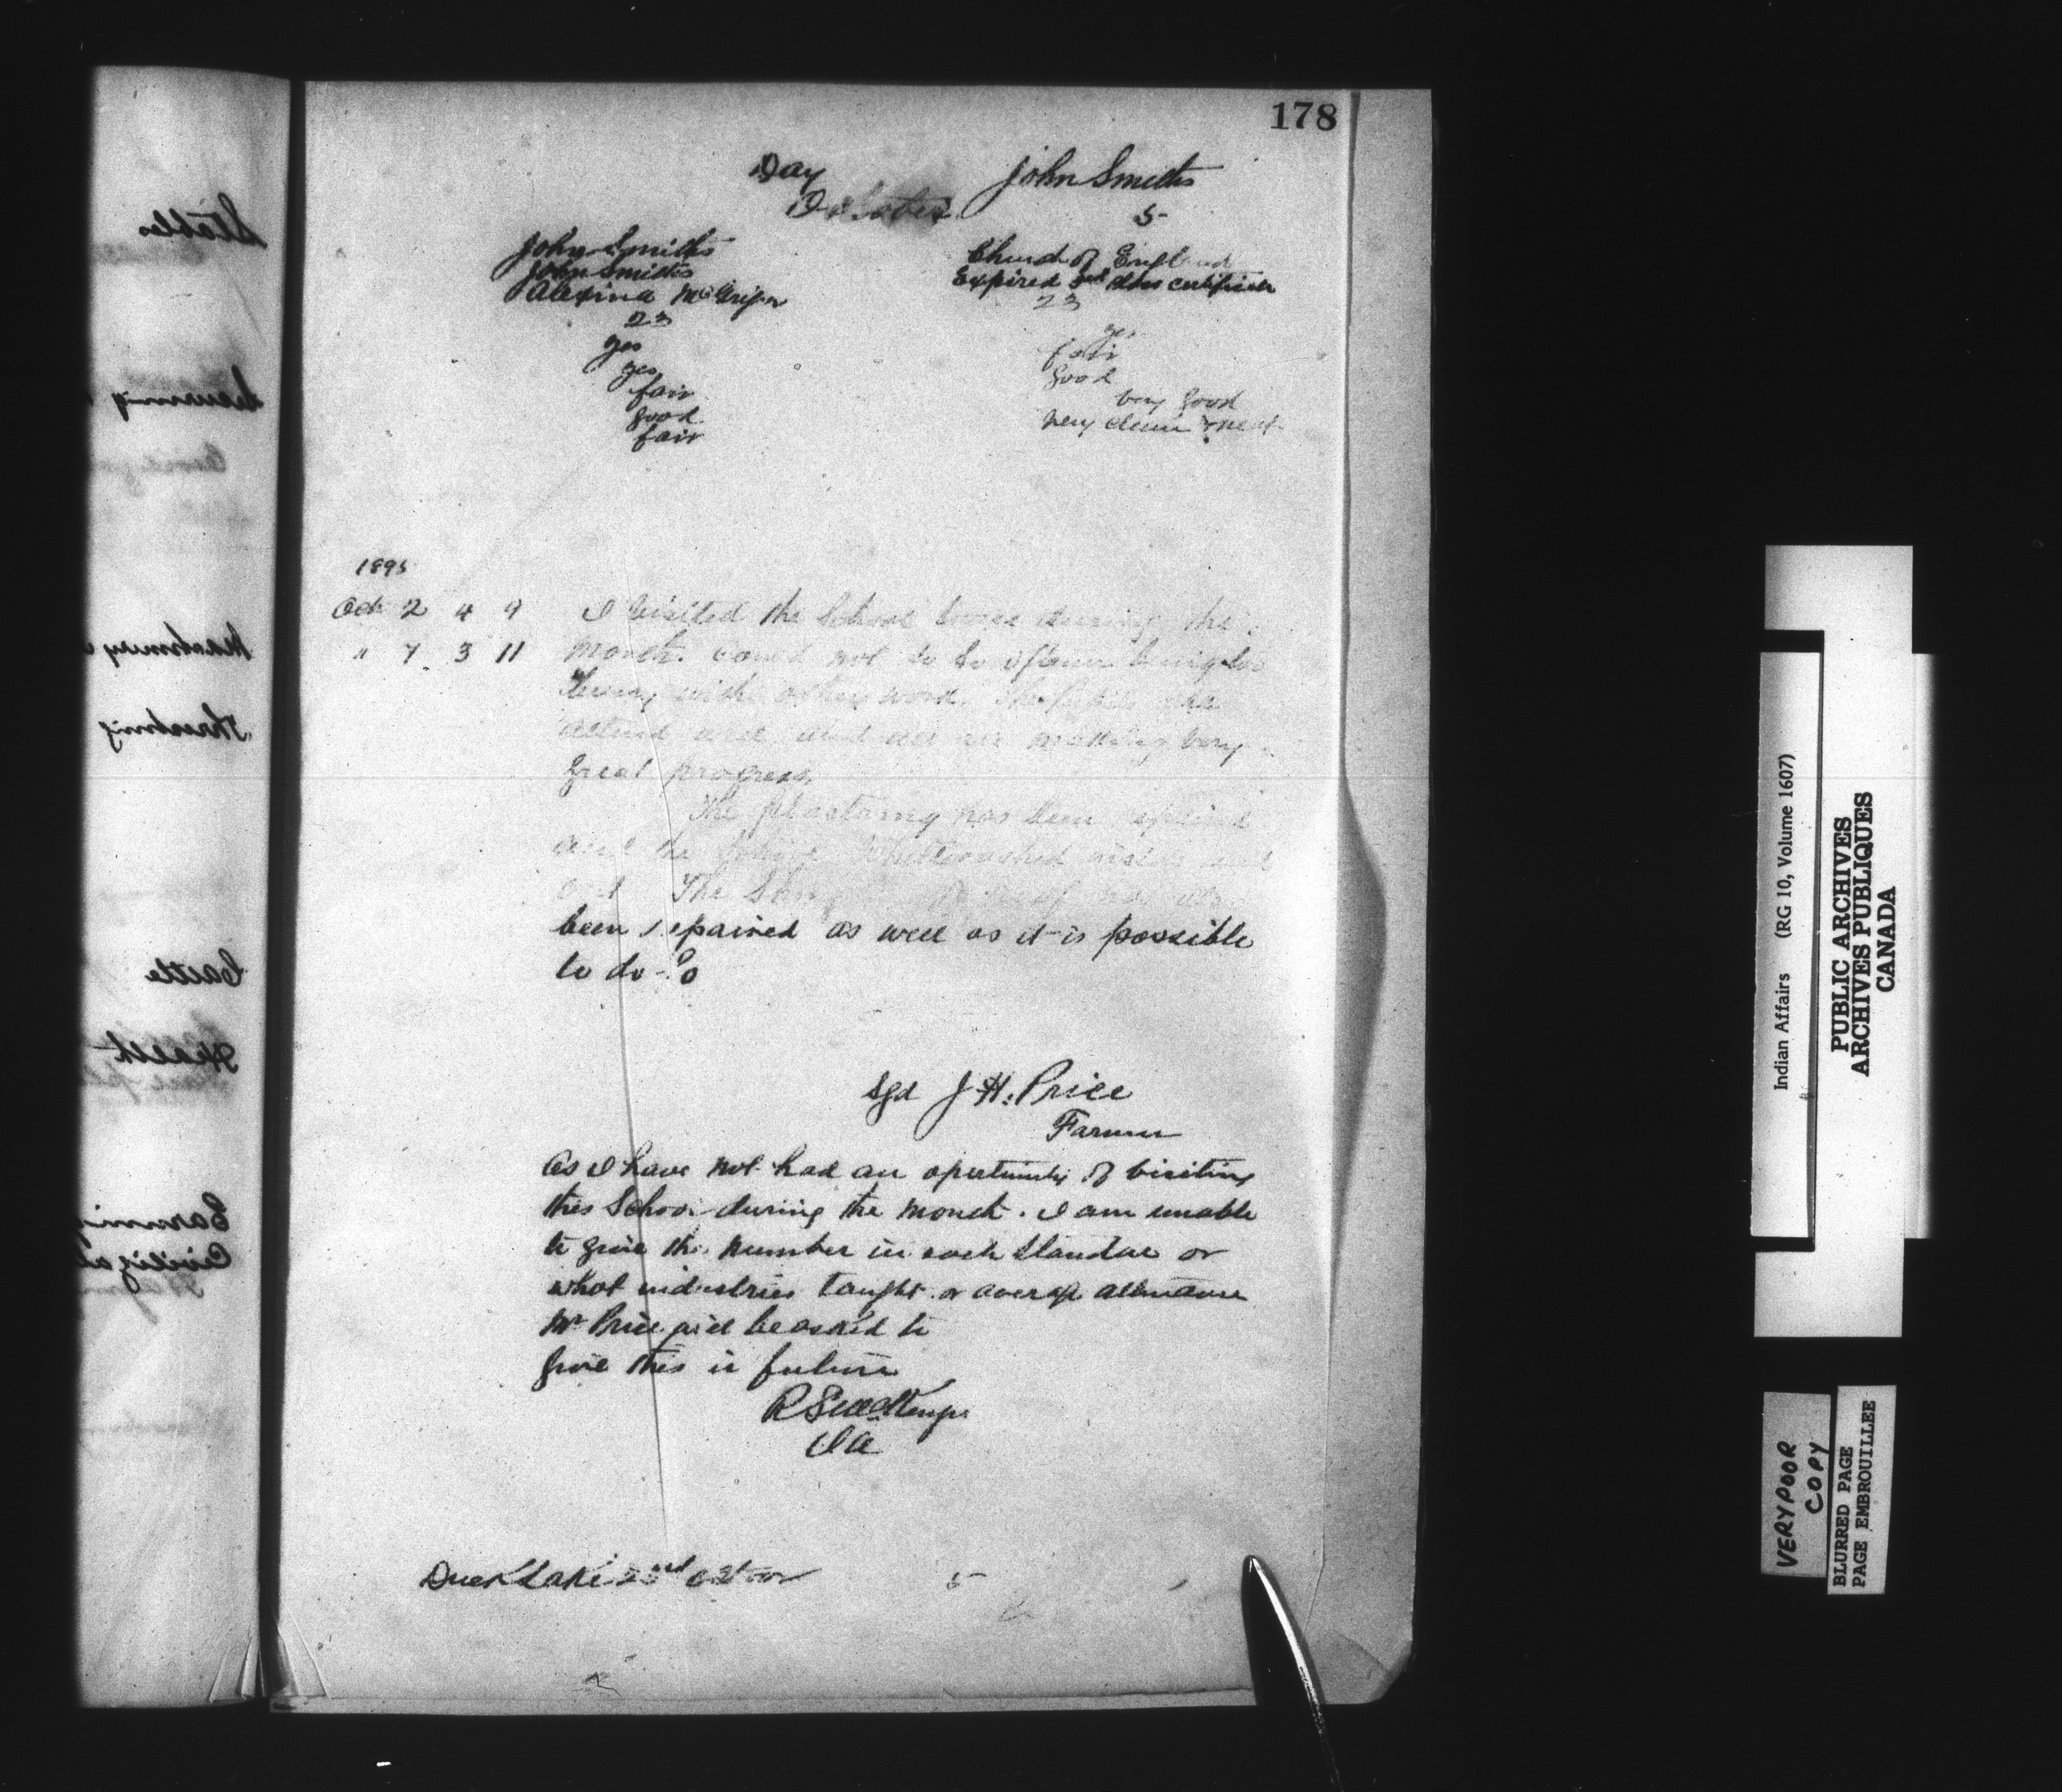 178
Day John Smiths
October 5
John Smiths Church of England
John Smiths Expired 3rd class certificate
Alexina McGregor 23
23
yes yes
yes fair
fair good
good very good
fair very clean & neat
1895
Oct 2 4 9 I visited the School twice during the
" 7 3 11 month. Could not do so oftener being too
busy with other work. The Pupils who
attend well and are making very
great progress.
The plastering has been repaired
and the School Whitewashed inside and
out The roof has also
been repaired as well as it is possible
to do so
Sgd J. H. Price
Farmer
As I have not had an opertunity of visiting
this School during the month. I am unable
to give the number in each Standard or
what industries taught or average attendance
Mr Price will be asked to
give this in future
R S McKenzie
I A
Duck Lake 23rd October 5
Stables
Threshing
Cattle
Health
Farming
PUBLIC ARCHIVES
ARCHIVES PUBLIQUES
CANADA
Indian Affairs (RG 10, Volume 1607)
VERY POOR
COPY
BLURRED PAGE
PAGE EMBROUILLEE